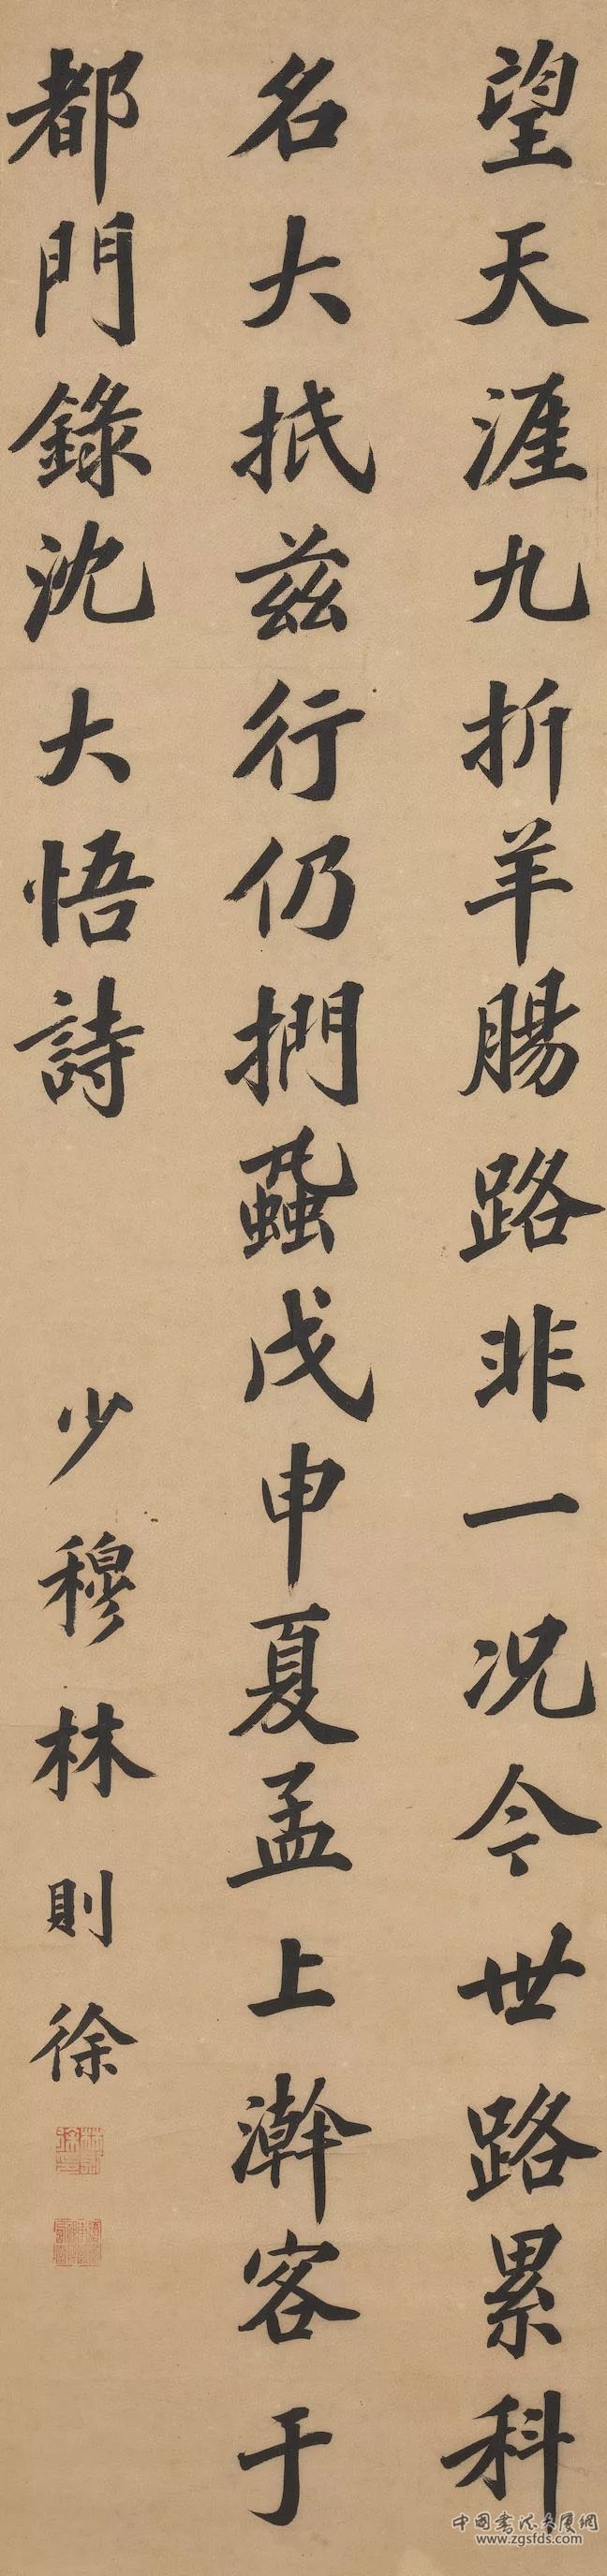 望天涯九折羊腸路非一况今世路累科
名大抵兹行仍捫蝨戊申夏孟上澣客于
都門錄沈大悟詩
少穆林則徐
中國書法大厦網
www.zgsfds.com